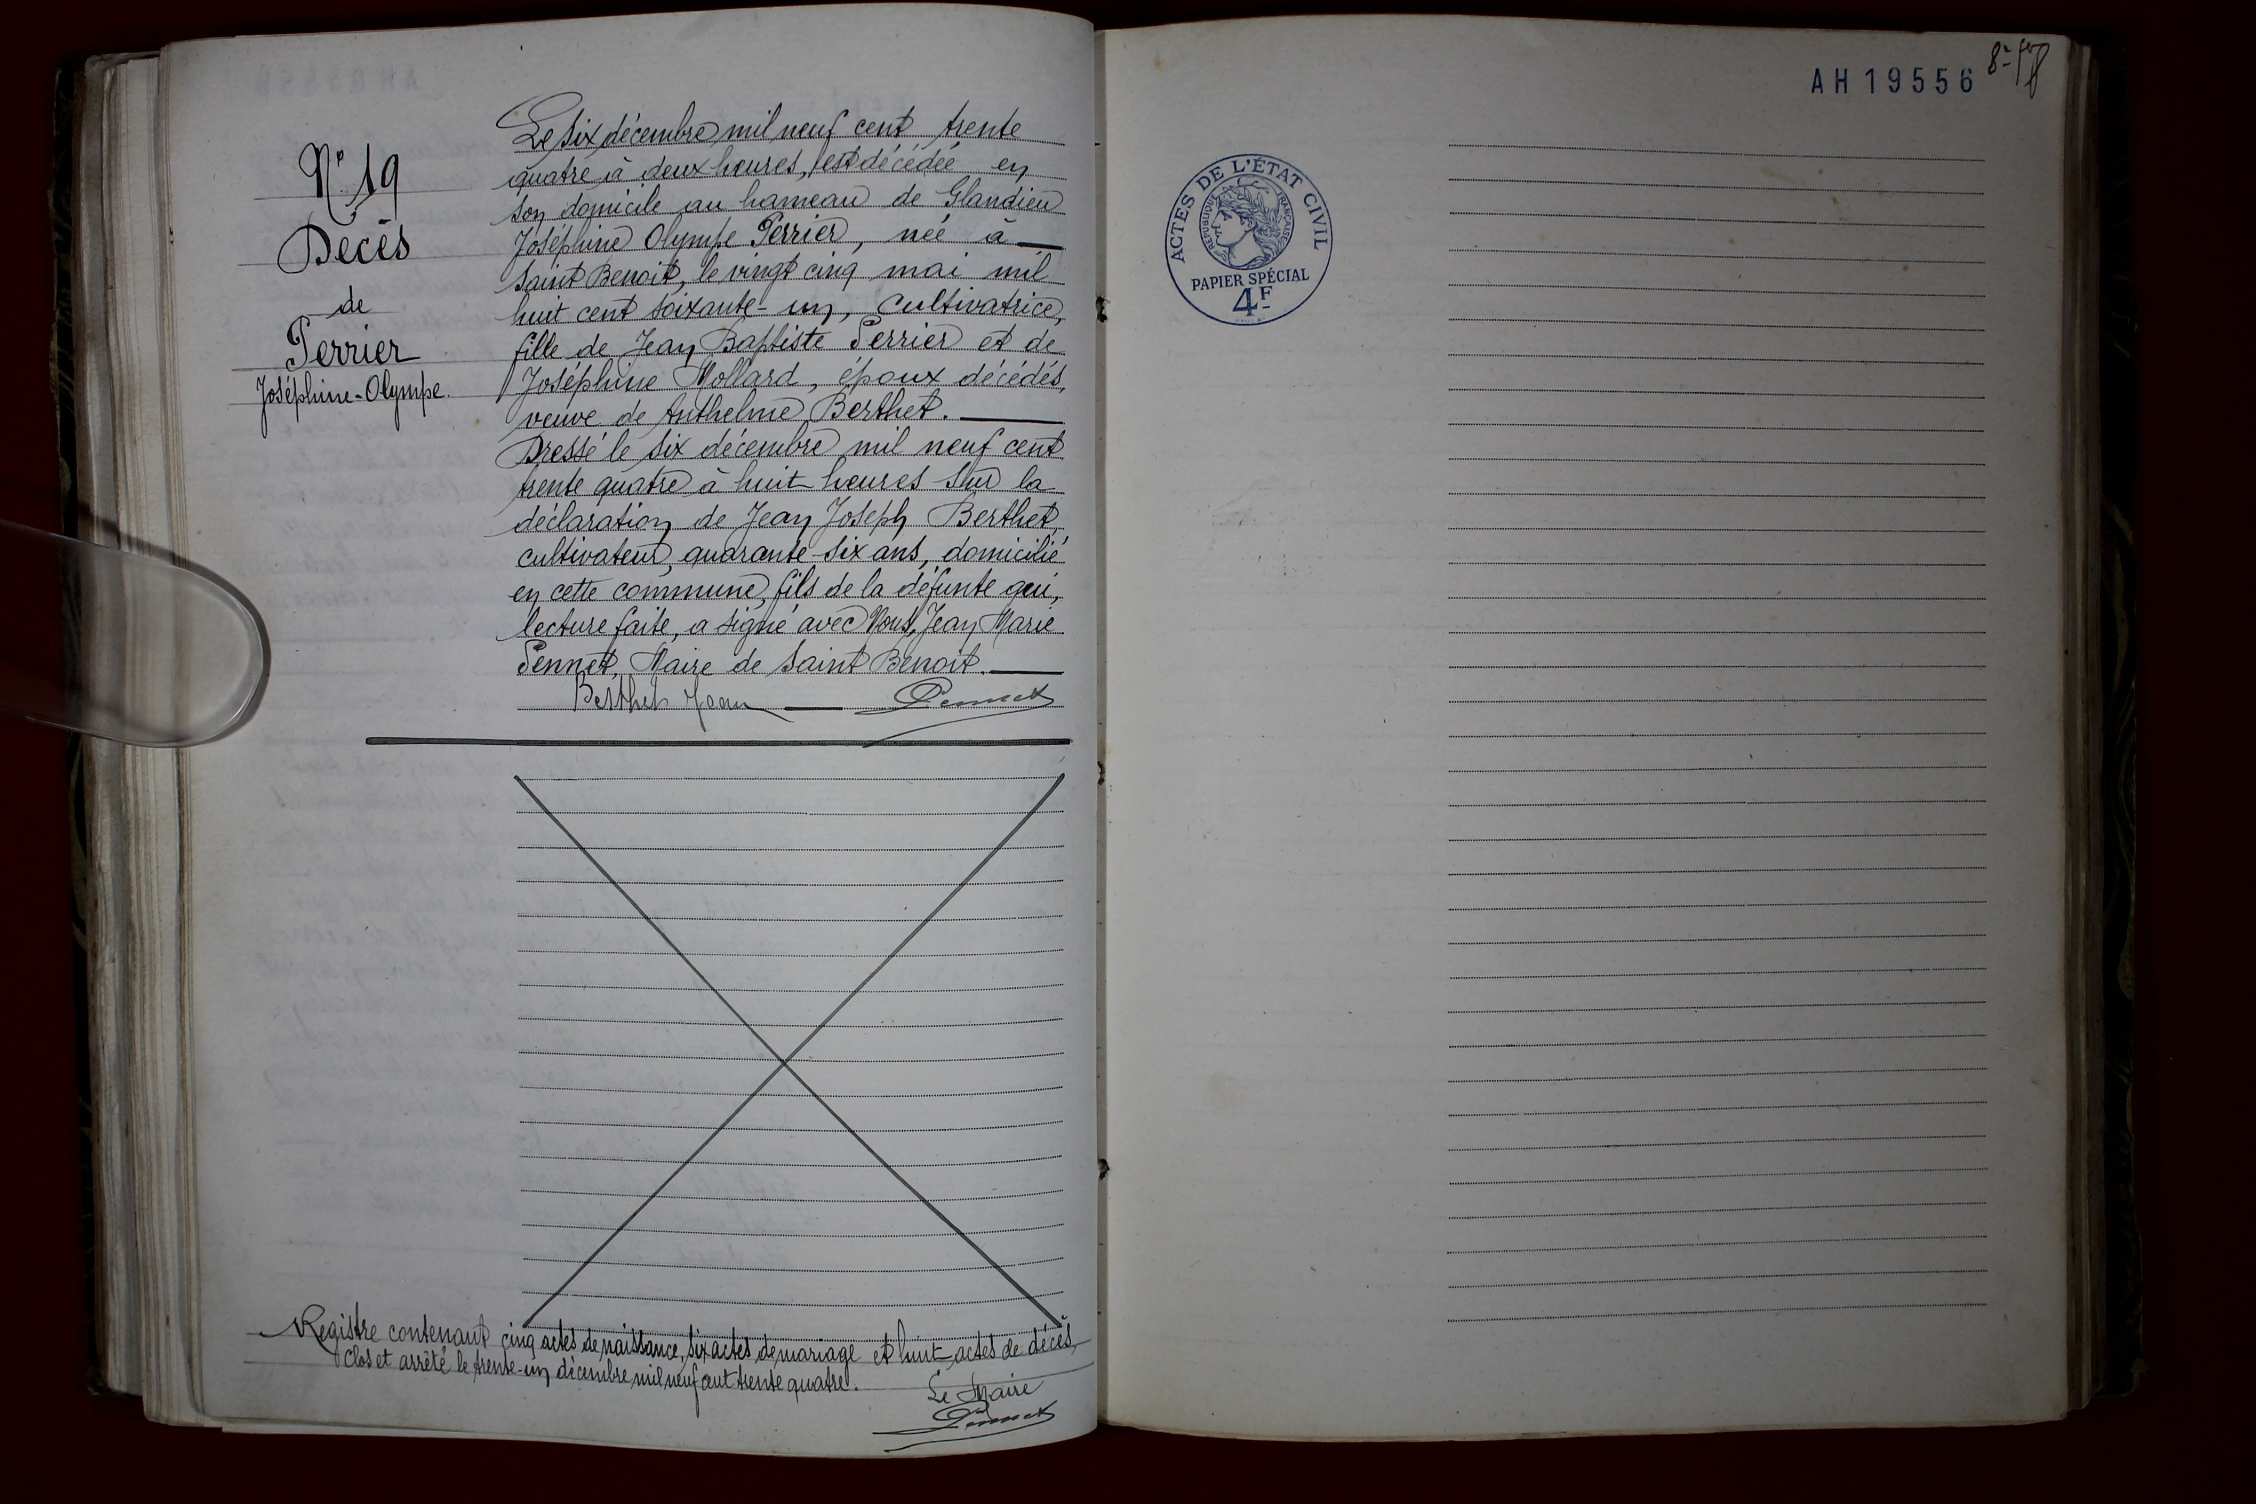 N° 19
Décès
de
Perrier
Joséphine-Olympe.
Le six décembre mil neuf cent trente
quatre à deux heures, est décédée en
son domicile au hameau de Glandieu
Joséphine Olympe Perrier, née à
Saint Benoit, le vingt cinq mai mil
huit cent soixante-un, cultivatrice,
fille de Jean Baptiste Perrier et de
Joséphine Mollard, époux décédés,
veuve de Anthelme Berthet.
Dressé le six décembre mil neuf cent
trente quatre à huit heures sur la
déclaration de Jean Joseph Berthet,
cultivateur, quarante-six ans, domicilié
en cette commune, fils de la défunte qui,
lecture faite, a signé avec Nous, Jean Marie
Pennet, Maire de Saint Benoit.
Berthet Jean Pennet
Registre contenant cinq actes de naissance, six actes de mariage et huit actes de décès,
clos et arrêté le trente-un décembre mil neuf cent trente quatre.
Le Maire
Pennet
AH19556
ACTES DE L'ÉTAT CIVIL
RÉPUBLIQUE FRANÇAISE
PAPIER SPÉCIAL
4F